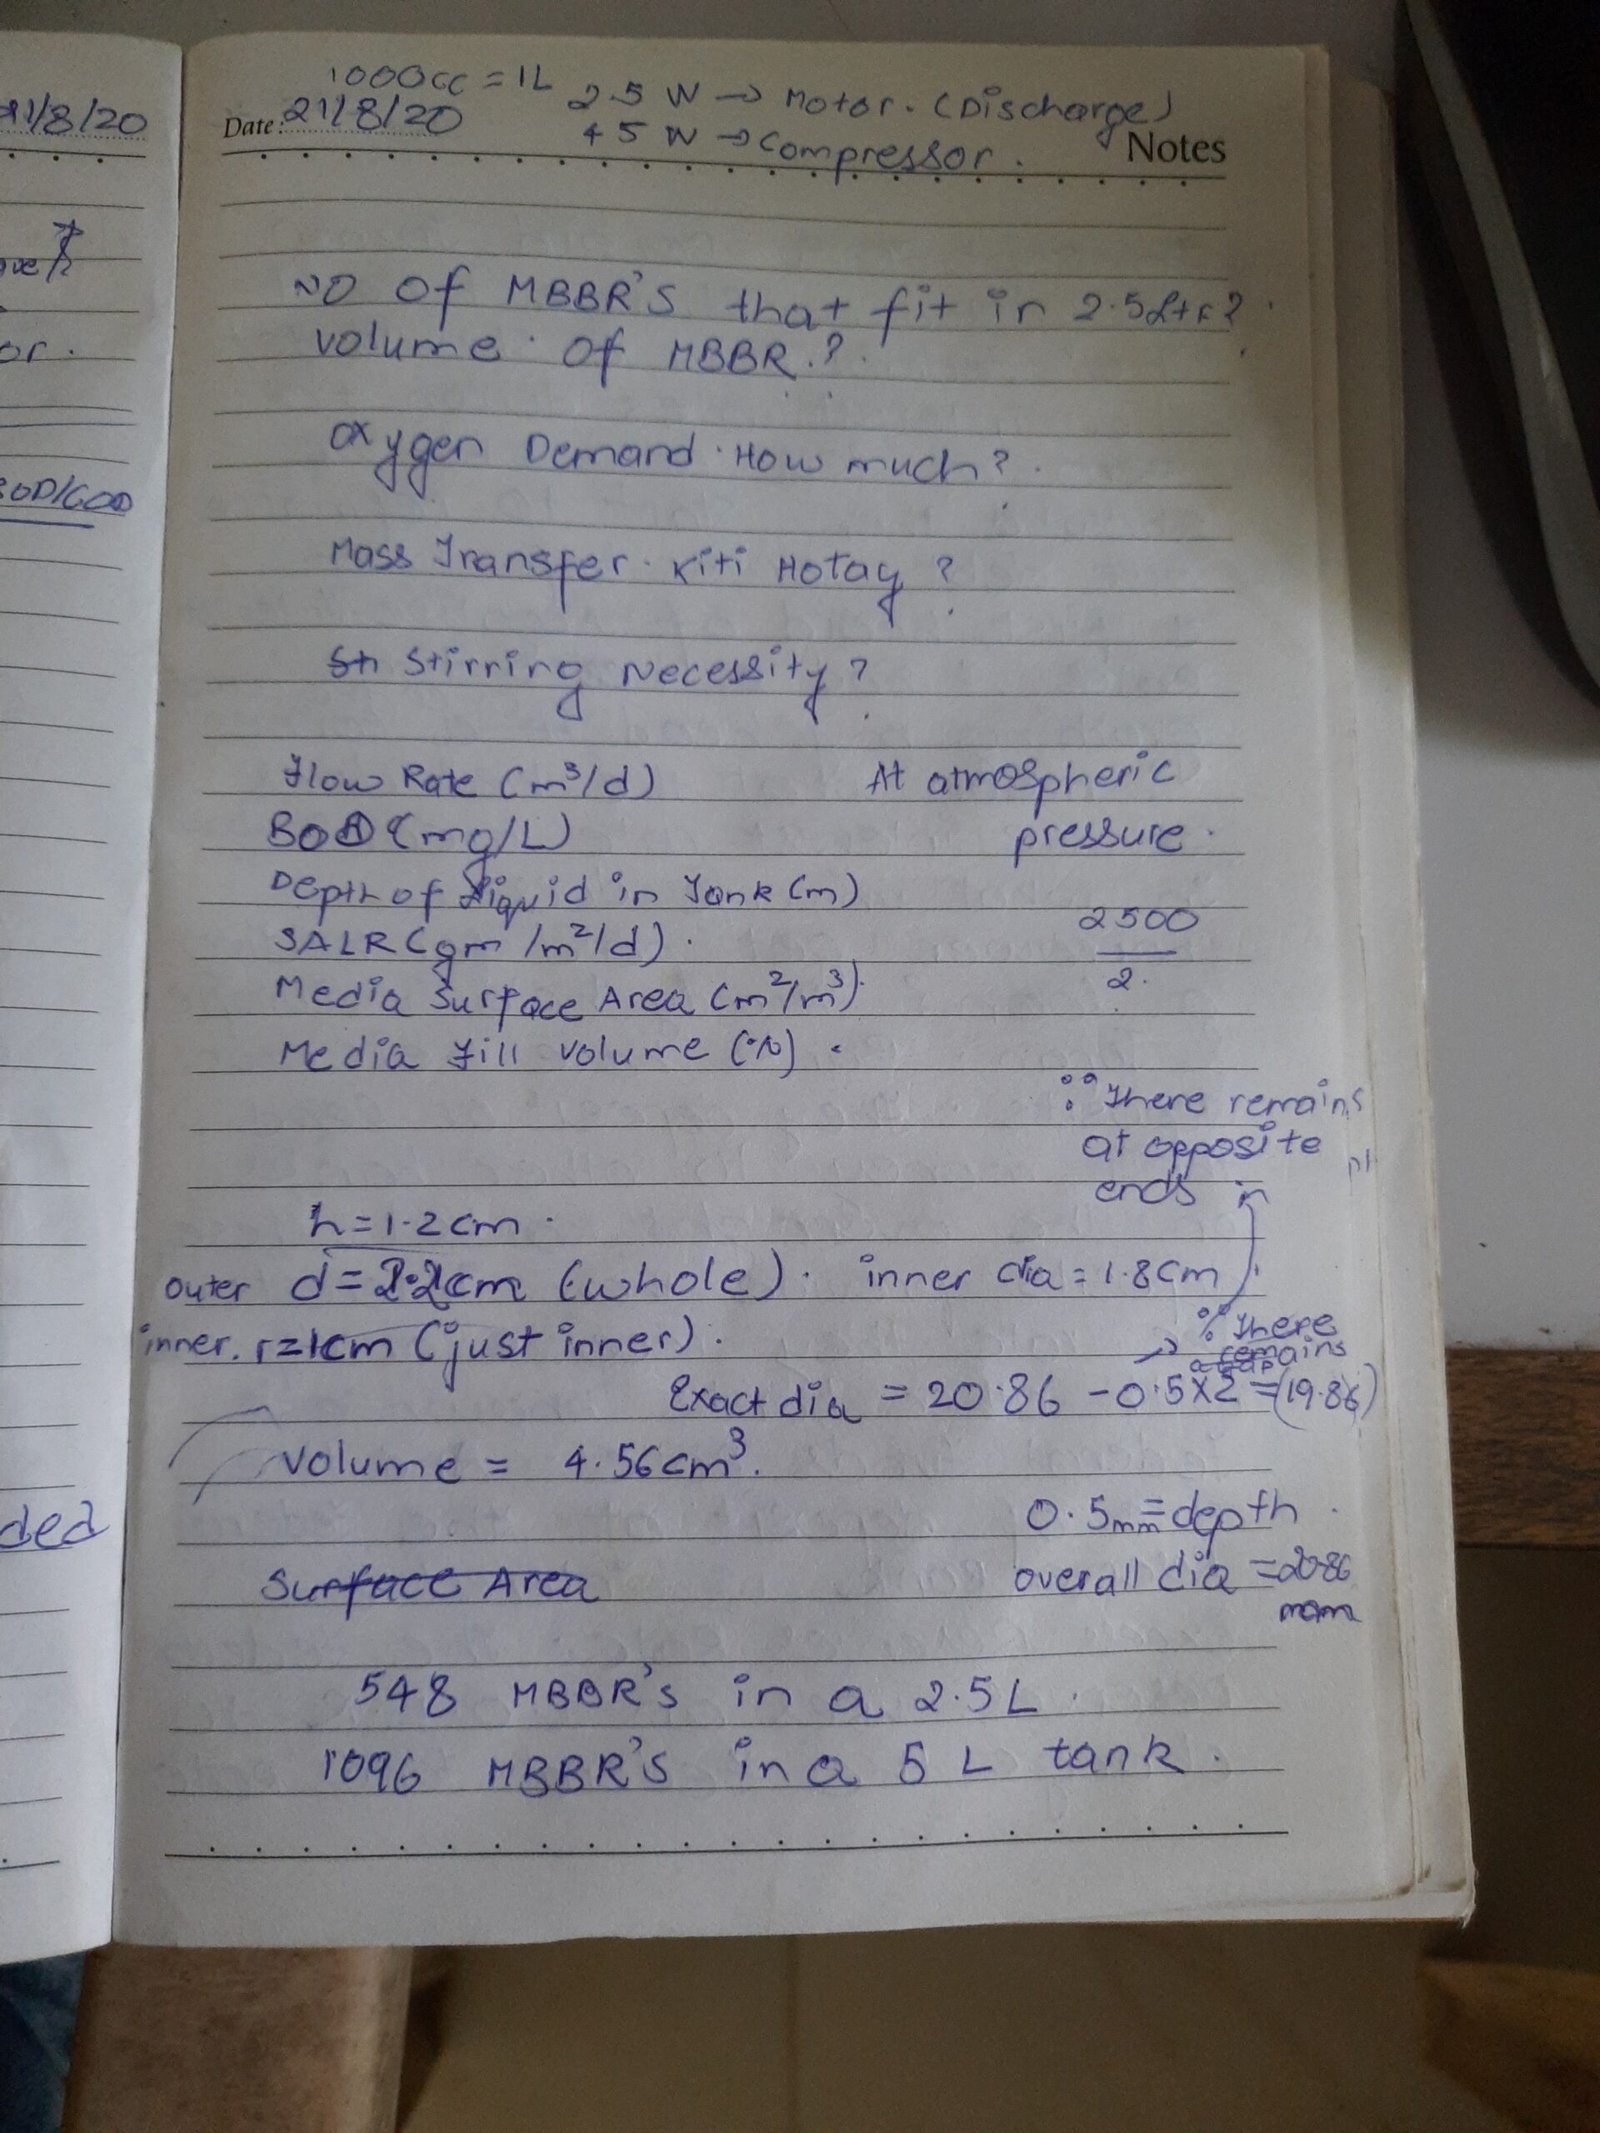 21/8/20
or.
BOD/COD
ded
1000cc = 1L
25 W → Motor. (Discharge)
Date: 21/8/20
45 W → Compressor.
Notes
NO Of MBBR'S that fit in 2.5Ltr?
Volume Of MBBR.?
Oxygen Demand. How much?
Mass Transfer. Kiti Hotay?
Stirring Necessity?
Flow Rate (m³/d)
At atmospheric
BOD (mg/L)
pressure.
Depth of liquid in Tank (m)
2500
SALR (gm/m²/d).
2.
Media Surface Area (m²/m³)
Media Fill Volume (%)
∵ There remains
at opposite
ends
h=1.2cm.
outer d=2.2cm (whole). inner dia = 1.8cm
inner. r=1cm (just inner).
∵ There
remains
Exact dia = 20.86 - 0.5x2 = (19.86)
Volume = 4.56cm³.
0.5mm = depth.
Surface Area
overall dia = 20.86
mm
548 MBBR's in a 2.5L.
1096 MBBR's in a 5 L tank.